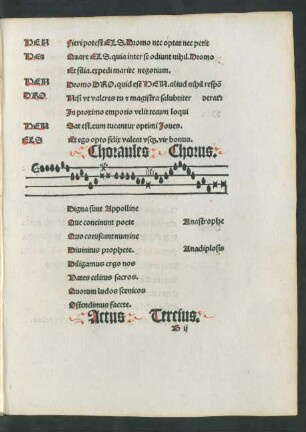 HEN Fieri potest ELS. Dromo nec optat nec petit
HEN Quare ELS. quia inter se odiunt nihil. Dromo
Et silia. expedi marite negotium.
HEN Dromo DRO. quid est HEN. aliud nihil respõ
DRO. Nisi vt valeres tu & magistra salubriter derat:
In proximo emporio velit tecum loqui
HEN Sat est. eum tucantur optimi Joues.
ELS Et ego opto felix valeat vsq. vir bonus.
Choraules Chorus.
Digna sunt Appolline
Que concinunt poete Anastrophe
Quo coruscant numine
Divinitus prophete. Anadiplosis
Diligamus ergo nos
Vates celitus sacros.
Quorum ludos scenicos
Ostendimus facete.
Actus Tercius.
B ij